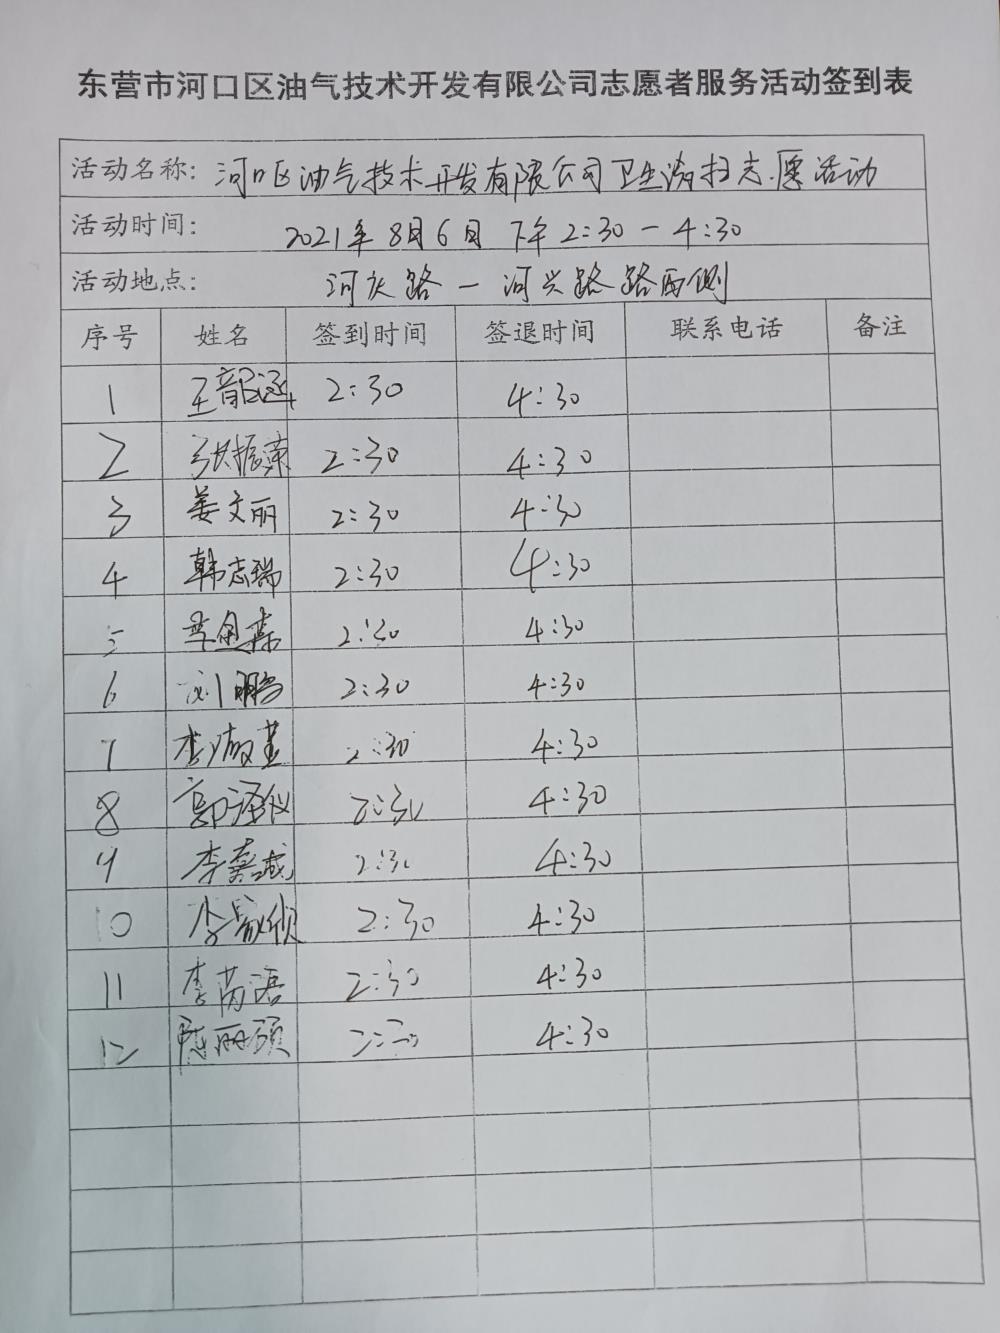 东营市河口区油气技术开发有限公司志愿者服务活动签到表
活动名称: 河口区油气技术开发有限公司卫生清扫志愿活动
活动时间: 2021年8月6日 下午2:30-4:30
活动地点: 河庆路一河兴路路西侧
序号 姓名 签到时间 签退时间 联系电话 备注
1 王韶涵 2:30 4:30
2 张振荣 2:30 4:30
3 姜文丽 2:30 4:30
4 韩志瑞 2:30 4:30
5 2:30 4:30
6 刘鹏 2:30 4:30
7 2:30 4:30
8 郭泽仪 2:30 4:30
9 2:30 4:30
10 2:30 4:30
11 李芮语 2:30 4:30
12 陈丽硕 2:30 4:30